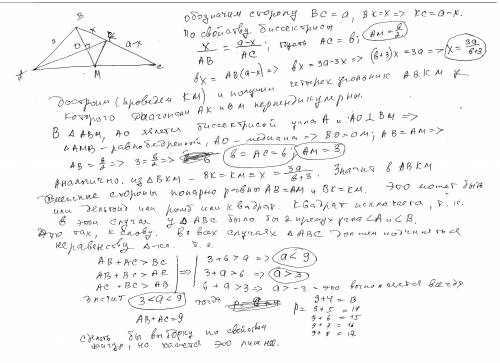 B
3
x
K
O
a-x
A
M
C
обозначим сторону BC=a, BK=x => KC=a-x.
По свойству биссектрисы
x/AB = (a-x)/AC; пусть AC=b; AM=b/2
bx=AB(a-x) => bx=3a-3x => (b+3)x=3a => x=3a/(b+3)
достроим (проведем KM) и получим четырехугольник ABKM у
которого диагонали AK и BM перпендикулярны.
В △ABM, AO является биссектрисой угла A и AO⊥BM =>
△AMB - равнобедренный, AO - медиана => BO=OM; AB=AM=>
AB=b/2 => 3=b/2 => b=AC=6; AM=3
Аналогично, из △BKM - BK=KM=x=3a/(b+3). Значит в ABKM
стороны попарно равны AB=AM и BK=KM. Это может быть
или дельтоид или ромб или квадрат. Квадрат исключается, т.к.
в этом случае у △ABC было бы 2 прямых угла ∠A и ∠B.
Это так, к слову. Во всех случаях △ABC должен подчиняться
неравенству
AB+AC>BC 3+6>a => a<9
AB+BC>AC => 3+a>6 => a>3
AC+BC>AB 6+a>3 => a>-3 - это выполняется всегда
Значит 3<a<9 тогда
AB+AC=9
P= 9+4=13
9+5=14
9+6=15
9+7=16
9+8=17
сделать бы выборку по свойствам
но кажется это лишнее.